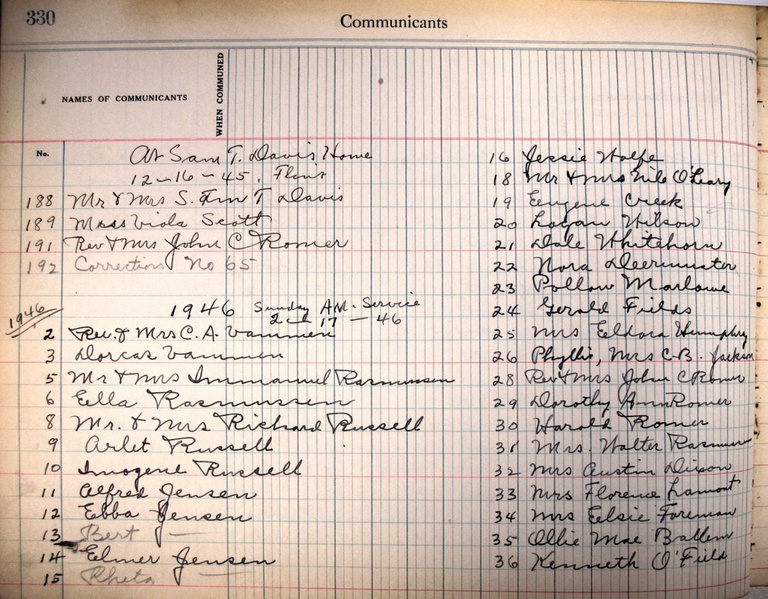 330
Communicants
NAMES OF COMMUNICANTS
WHEN COMMUNED
No.
At Sam T. Davis Home
12-16-45, Flint
188 Mr & Mrs S. T Davis
189 Miss Viola Scott
191 Rev & Mrs John C Romer
192 Correction No 65
1946
1946 Sunday A.M. Service
2-17-46
2 Rev. & Mrs C. A. Vammen
3 Dorcas Vammen
5 Mr & Mrs Immanuel Rasmussen
6 Ella Rasmussen
8 Mr. & Mrs Richard Russell
9 Arlet Russell
10 Imogene Russell
11 Alfred Jensen
12 Ebba Jensen
13 Bert J—
14 Elmer Jensen
15 Rheta —
16 Jessie Wolfe
18 Mr & Mrs Nile O'Leary
19 Eugene Creek
20 Logan Wilson
21 Dale Whitehorn
22 Nora
23 Marlowe
24 Gerald Fields
25 Mrs Eldora Humphrey
26 Phyllis, Mrs C.B. Jackson
28 Rev & Mrs John C Romer
29 Dorothy Ann Romer
30 Harold Romer
31 Mrs. Walter Rasmun
32 Mrs Austin Dixon
33 Mrs Florence Lamont
34 Mrs Elsie Foreman
35 Ollie Mae Ballem
36 Kenneth O'Field